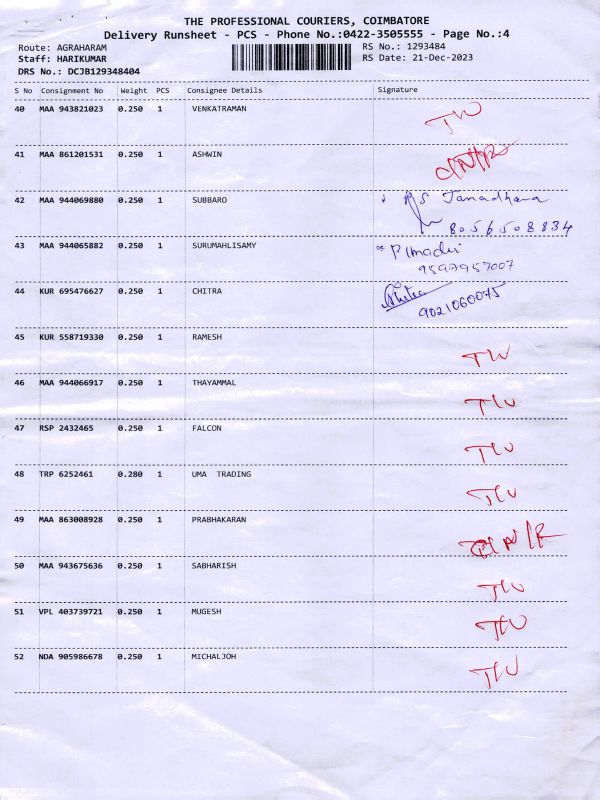 THE PROFESSIONAL COURIERS, COIMBATORE
Delivery Runsheet - PCS - Phone No.:0422-3505555 - Page No.:4
Route: AGRAHARAM RS No.: 1293484
Staff: HARIKUMAR RS Date: 21-Dec-2023
DRS No.: DCJB129348404
S No Consignment No Weight PCS Consignee Details Signature
40 MAA 943821023 0.250 1 VENKATRAMAN
41 MAA 861201531 0.250 1 ASHWIN
42 MAA 944069880 0.250 1 SUBBARO
8056508834
43 MAA 944065882 0.250 1 SURUMAHLISAMY
44 KUR 695476627 0.250 1 CHITRA
9021060075
45 KUR 558719330 0.250 1 RAMESH
46 MAA 944066917 0.250 1 THAYAMMAL
47 RSP 2432465 0.250 1 FALCON
48 TRP 6252461 0.280 1 UMA TRADING
49 MAA 863008928 0.250 1 PRABHAKARAN
50 MAA 943675636 0.250 1 SABHARISH
51 VPL 403739721 0.250 1 MUGESH
52 NDA 905986678 0.250 1 MICHALJOH